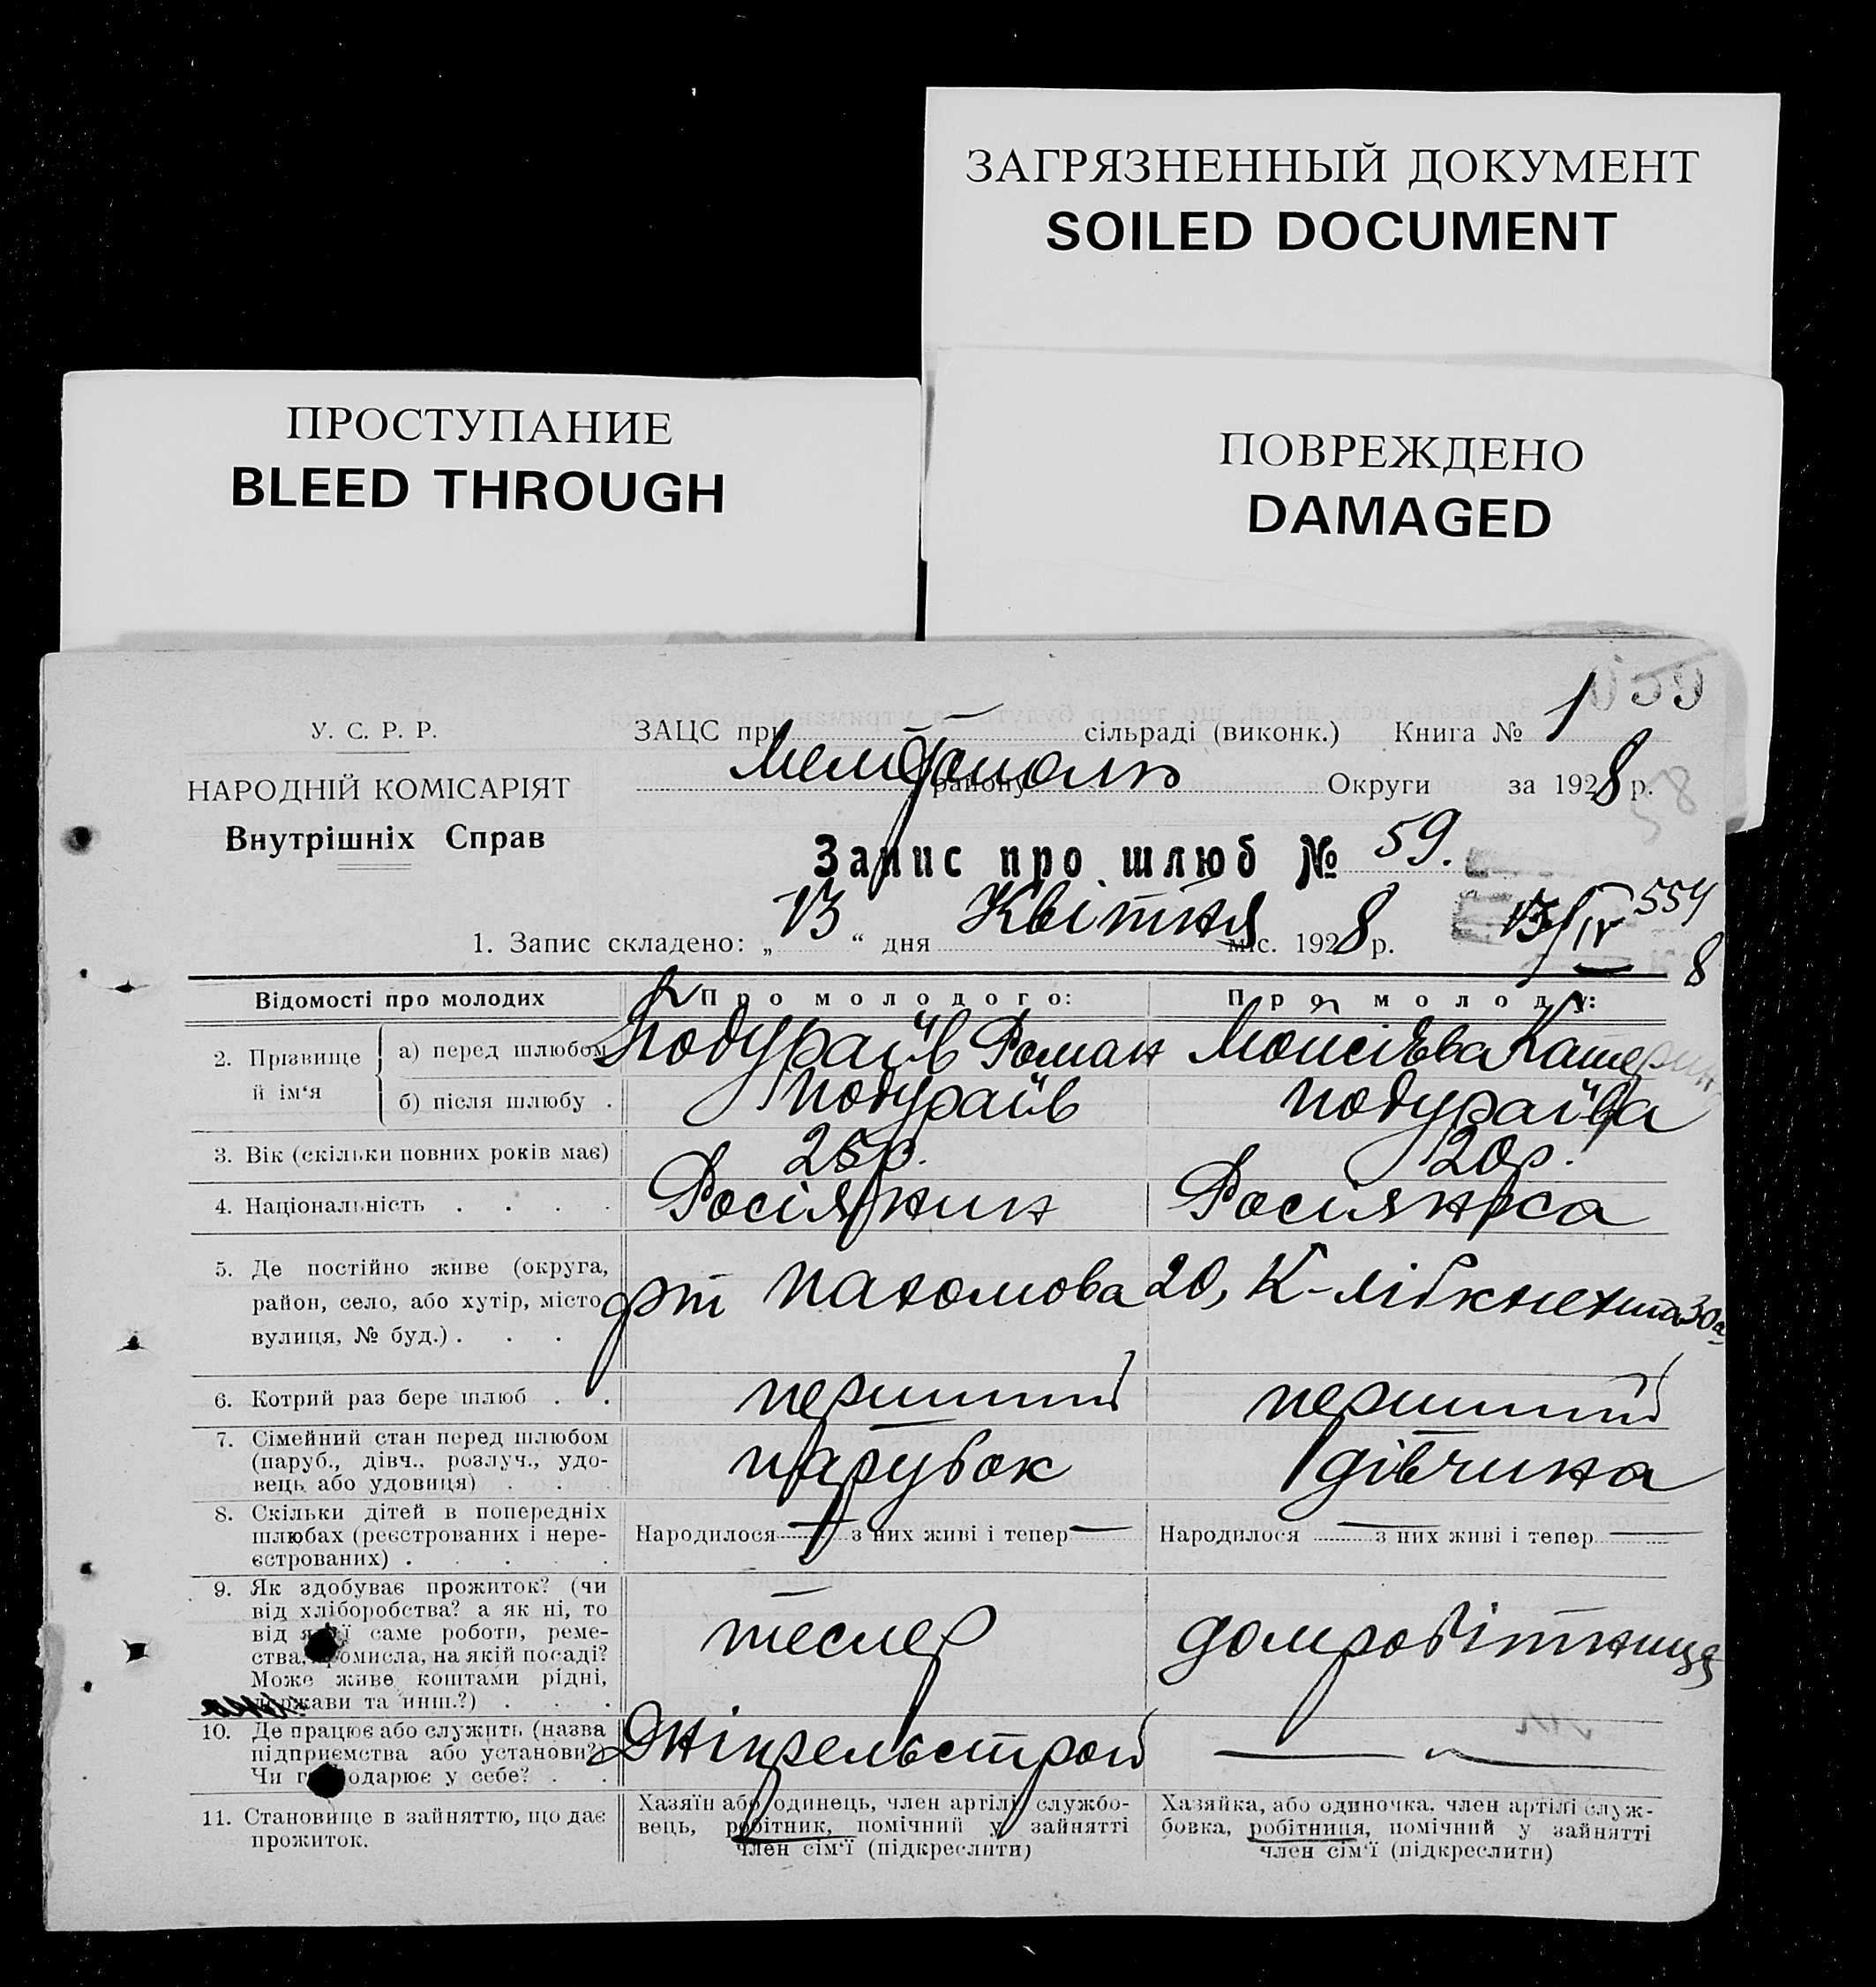 ЗАГРЯЗНЕННЫЙ ДОКУМЕНТ
SOILED DOCUMENT
ПРОСТУПАНИЕ
BLEED THROUGH
ПОВРЕЖДЕНО
DAMAGED
У. С. Р. Р.
НАРОДНІЙ КОМІСАРІЯТ
Внутрішніх Справ
ЗАЦС при — сільраді (виконк.) Книга № 1
Мелітополь району Округи за 1928 р.
Запис про шлюб № 59.
1. Запис складено: „13“ дня Квітня міс. 1928 р.
13/IV 8
554
Відомості про молодих Про молодого: Про молоду:
2. Прізвище й ім‘я
а) перед шлюбом Подураїв Роман Мойсієва Катерин
б) після шлюбу . Подураїв Подураїва
3. Вік (скільки повних років має) 25р. 20р.
4. Національність . . . . Росіянин Росіянка
5. Де постійно живе (округа,
район, село, або хутір, місто,
вулиця, № буд.) . . .
Пахомова 20, К-Лібкнехта 30а
6. Котрий раз бере шлюб . . перший перший
7. Сімейний стан перед шлюбом
(паруб., дівч., розлуч., удо-
вець або удовиця) . . .
парубок дівчина
8. Скільки дітей в попередніх
шлюбах (реєстрованих і нере-
єстрованих) . . . .
Народилося — з них живі і тепер — Народилося — з них живі і тепер —
9. Як здобуває прожиток? (чи
від хліборобства? а як ні, то
від якої саме роботи, реме-
ства, промисла, на якій посаді?
Може живе коштами рідні,
держави та инш.?) . . .
тесляр домробітниця
10. Де працює або служить (назва
підприємства або установи?)
Чи господарює у себе? . .
Дніпрельстрой —〃—
11. Становище в зайняттю, що дає
прожиток.
Хазяїн або одинець, член артілі, службо-
вець, робітник, помічний у зайнятті
член сім‘ї (підкреслити)
Хазяйка, або одиночка, член артілі служ-
бовка, робітниця, помічний у зайнятті
член сім‘ї (підкреслити)